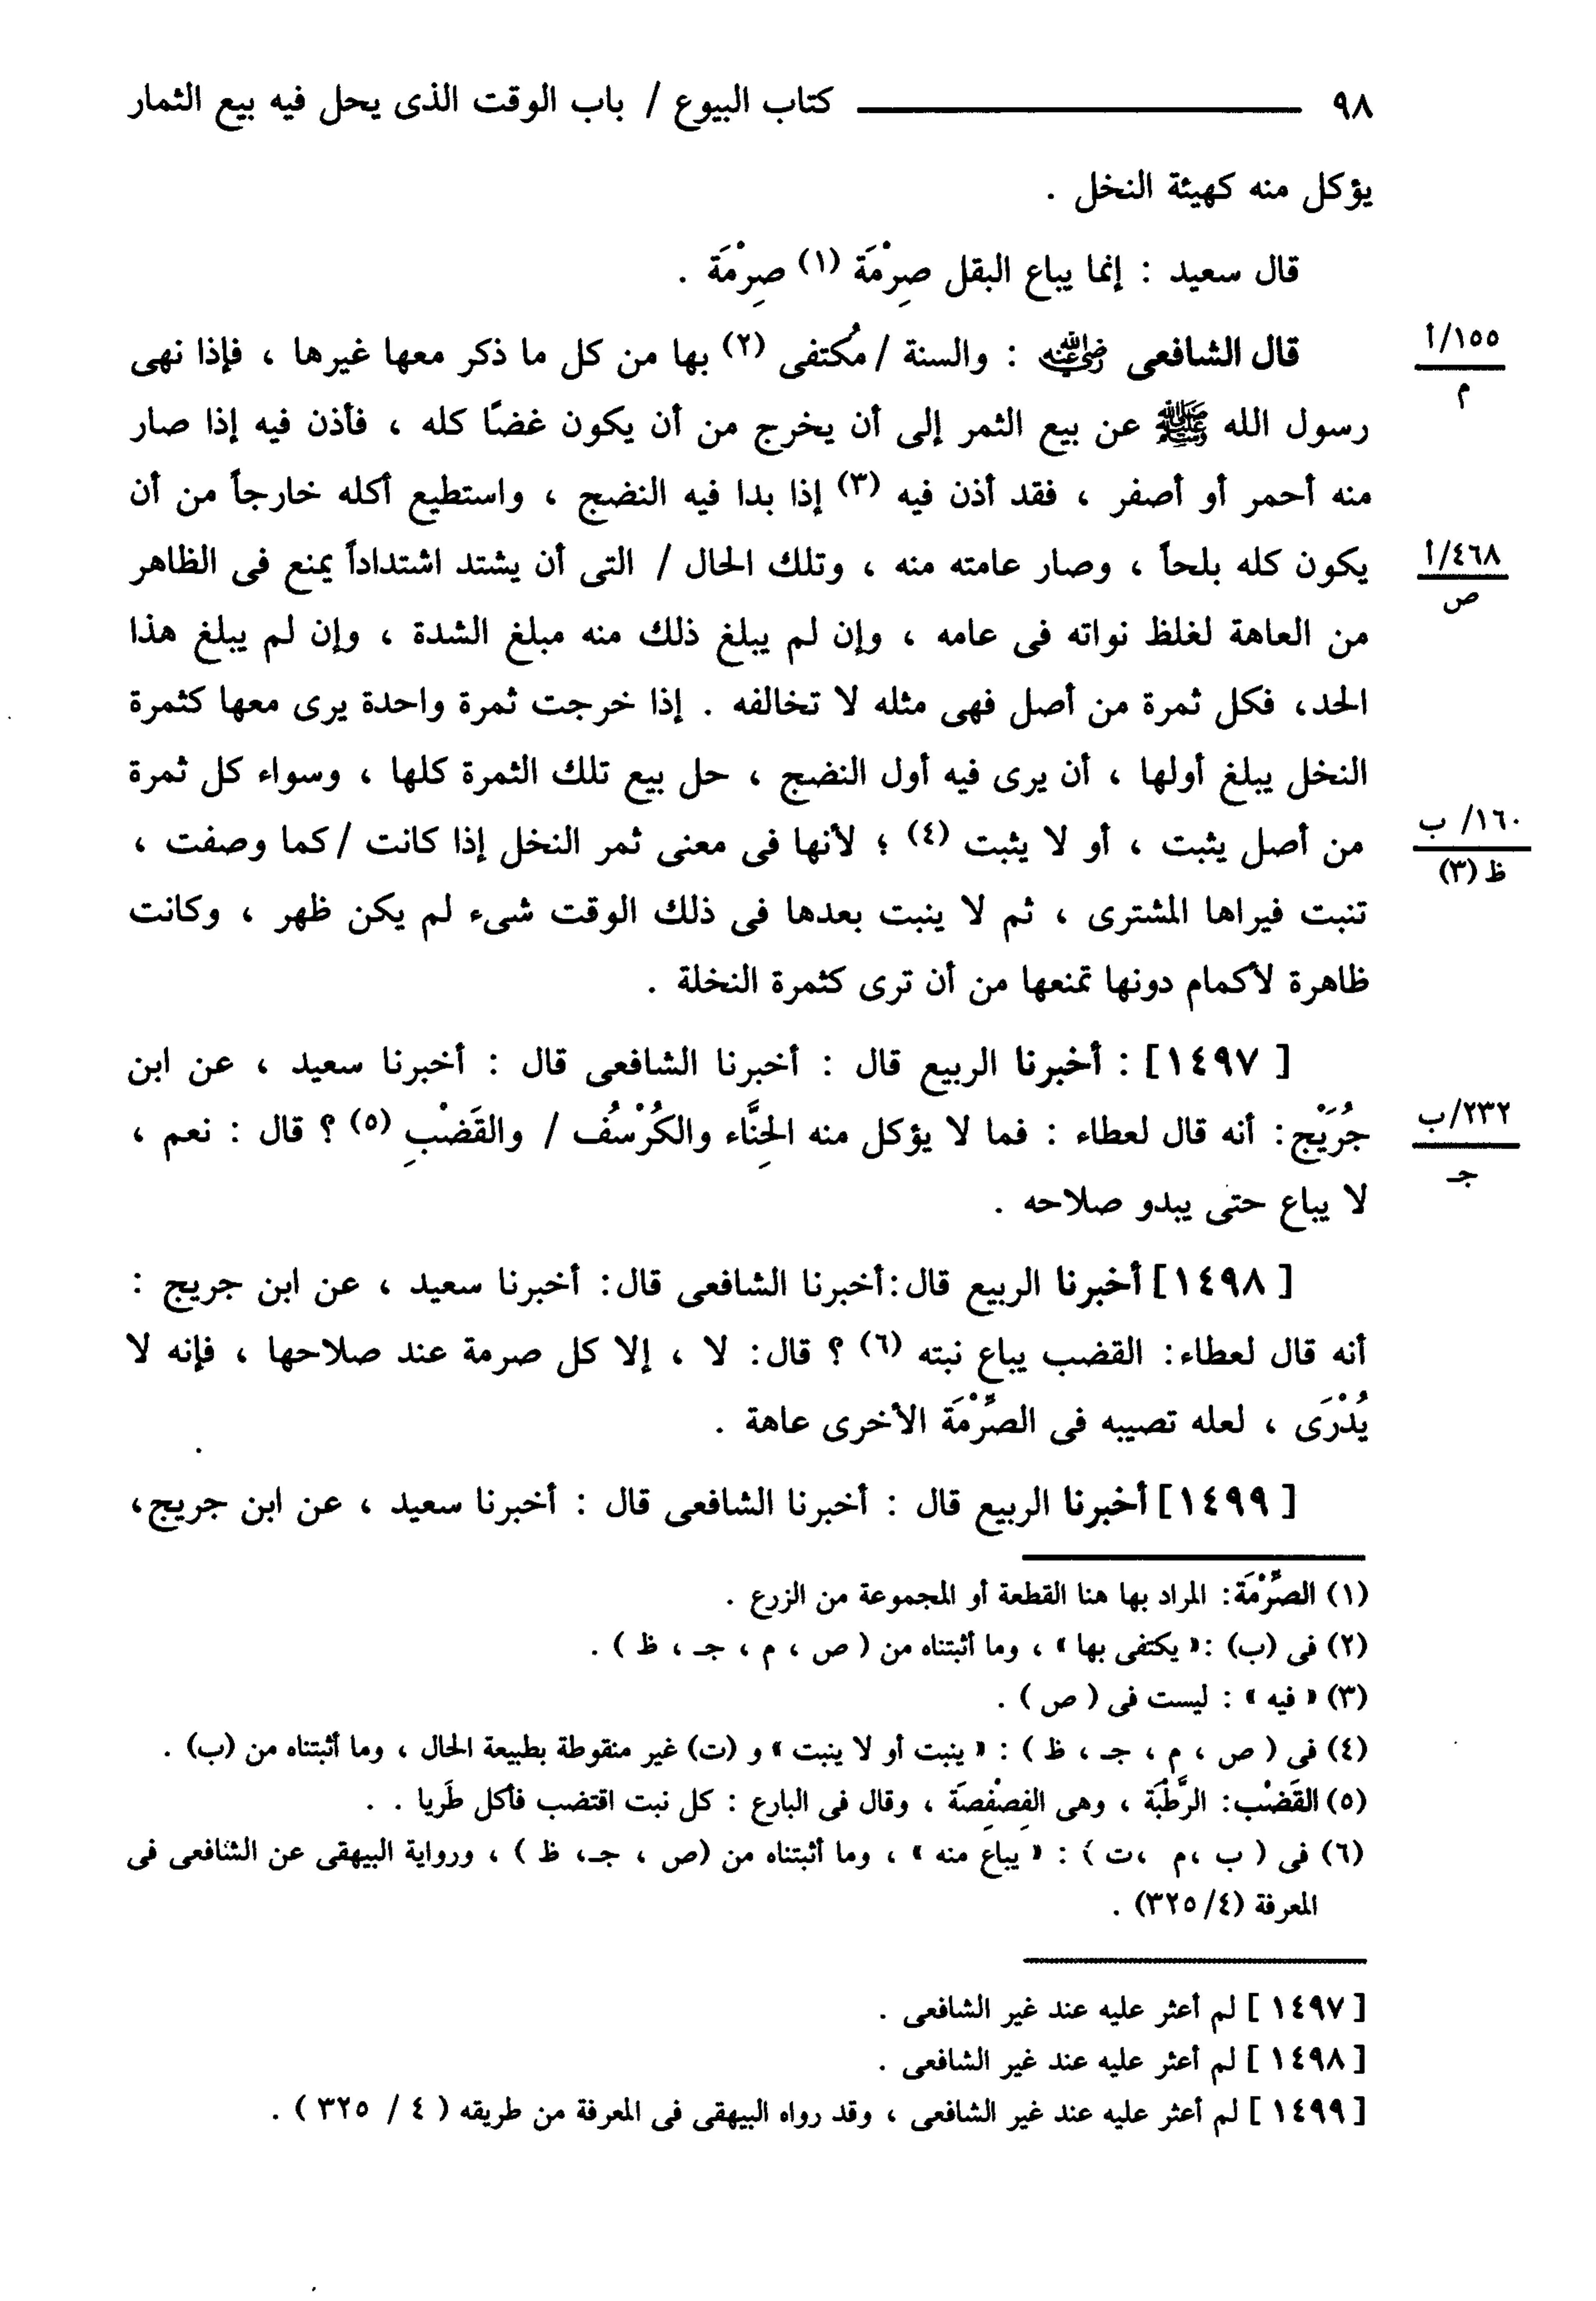 ٩٨ ــــــــــــــــ كتاب البيوع / باب الوقت الذى يحل فيه بيع الثمار
يؤكل منه كهيئة النخل .
قال سعيد : إنما يباع البقل صِرْمَة (١) صِرْمَة .
قال الشافعى رضي الله عنه : والسنة / مُكتفى (٢) بها من كل ما ذكر معها غيرها ، فإذا نهى
١٥٥/أ
م
رسول الله ﷺ عن بيع الثمر إلى أن يخرج من أن يكون غضًا كله ، فأذن فيه إذا صار
منه أحمر أو أصفر ، فقد أذن فيه (٣) إذا بدا فيه النضج ، واستطيع أكله خارجاً من أن
يكون كله بلحاً ، وصار عامته منه ، وتلك الحال / التى أن يشتد اشتداداً يمنع فى الظاهر
٤٦٨/أ
ص
من العاهة لغلظ نواته فى عامه ، وإن لم يبلغ ذلك منه مبلغ الشدة ، وإن لم يبلغ هذا
الحد، فكل ثمرة من أصل فهى مثله لا تخالفه . إذا خرجت ثمرة واحدة يرى معها كثمرة
النخل يبلغ أولها ، أن يرى فيه أول النضج ، حل بيع تلك الثمرة كلها ، وسواء كل ثمرة
من أصل يثبت ، أو لا يثبت (٤) ؛ لأنها فى معنى ثمر النخل إذا كانت / كما وصفت ،
١٦٠/ ب
ظ (٣)
تنبت فيراها المشترى ، ثم لا ينبت بعدها فى ذلك الوقت شىء لم يكن ظهر ، وكانت
ظاهرة لأكمام دونها تمنعها من أن ترى كثمرة النخلة .
[ ١٤٩٧] : أخبرنا الربيع قال : أخبرنا الشافعى قال : أخبرنا سعيد ، عن ابن
جُرَيْج: أنه قال لعطاء : فما لا يؤكل منه الحِنَّاء والكُرْسُف / والقَضْبِ (٥) ؟ قال : نعم ،
٢٣٢/ب
جـ
لا يباع حتى يبدو صلاحه .
[ ١٤٩٨] أخبرنا الربيع قال:أخبرنا الشافعى قال: أخبرنا سعيد ، عن ابن جريج :
أنه قال لعطاء: القضب يباع نبته (٦) ؟ قال: لا ، إلا كل صرمة عند صلاحها ، فإنه لا
يُدْرَى ، لعله تصيبه فى الصِّرْمَة الأخرى عاهة .
[ ١٤٩٩] أخبرنا الربيع قال : أخبرنا الشافعى قال : أخبرنا سعيد ، عن ابن جريج،
(١) الصِّرْمَة: المراد بها هنا القطعة أو المجموعة من الزرع .
(٢) فى (ب) :« يكتفى بها » ، وما أثبتناه من ( ص ، م ، جـ ، ظ ) .
(٣) « فيه » : ليست فى ( ص ) .
(٤) فى ( ص ، م ، جـ ، ظ ) : « ينبت أو لا ينبت » و (ت) غير منقوطة بطبيعة الحال ، وما أثبتناه من (ب) .
(٥) القَضْب: الرَّطْبَة ، وهى الفِصْفِصَة ، وقال فى البارع : كل نبت اقتضب فأكل طَريا . .
(٦) فى ( ب ،م ،ت ) : « يباع منه » ، وما أثبتناه من (ص ، جـ، ظ ) ، ورواية البيهقى عن الشافعى فى
المعرفة (٤/ ٣٢٥) .
[ ١٤٩٧ ] لم أعثر عليه عند غير الشافعى .
[ ١٤٩٨ ] لم أعثر عليه عند غير الشافعى .
[ ١٤٩٩ ] لم أعثر عليه عند غير الشافعى ، وقد رواه البيهقى فى المعرفة من طريقه ( ٤ / ٣٢٥ ) .